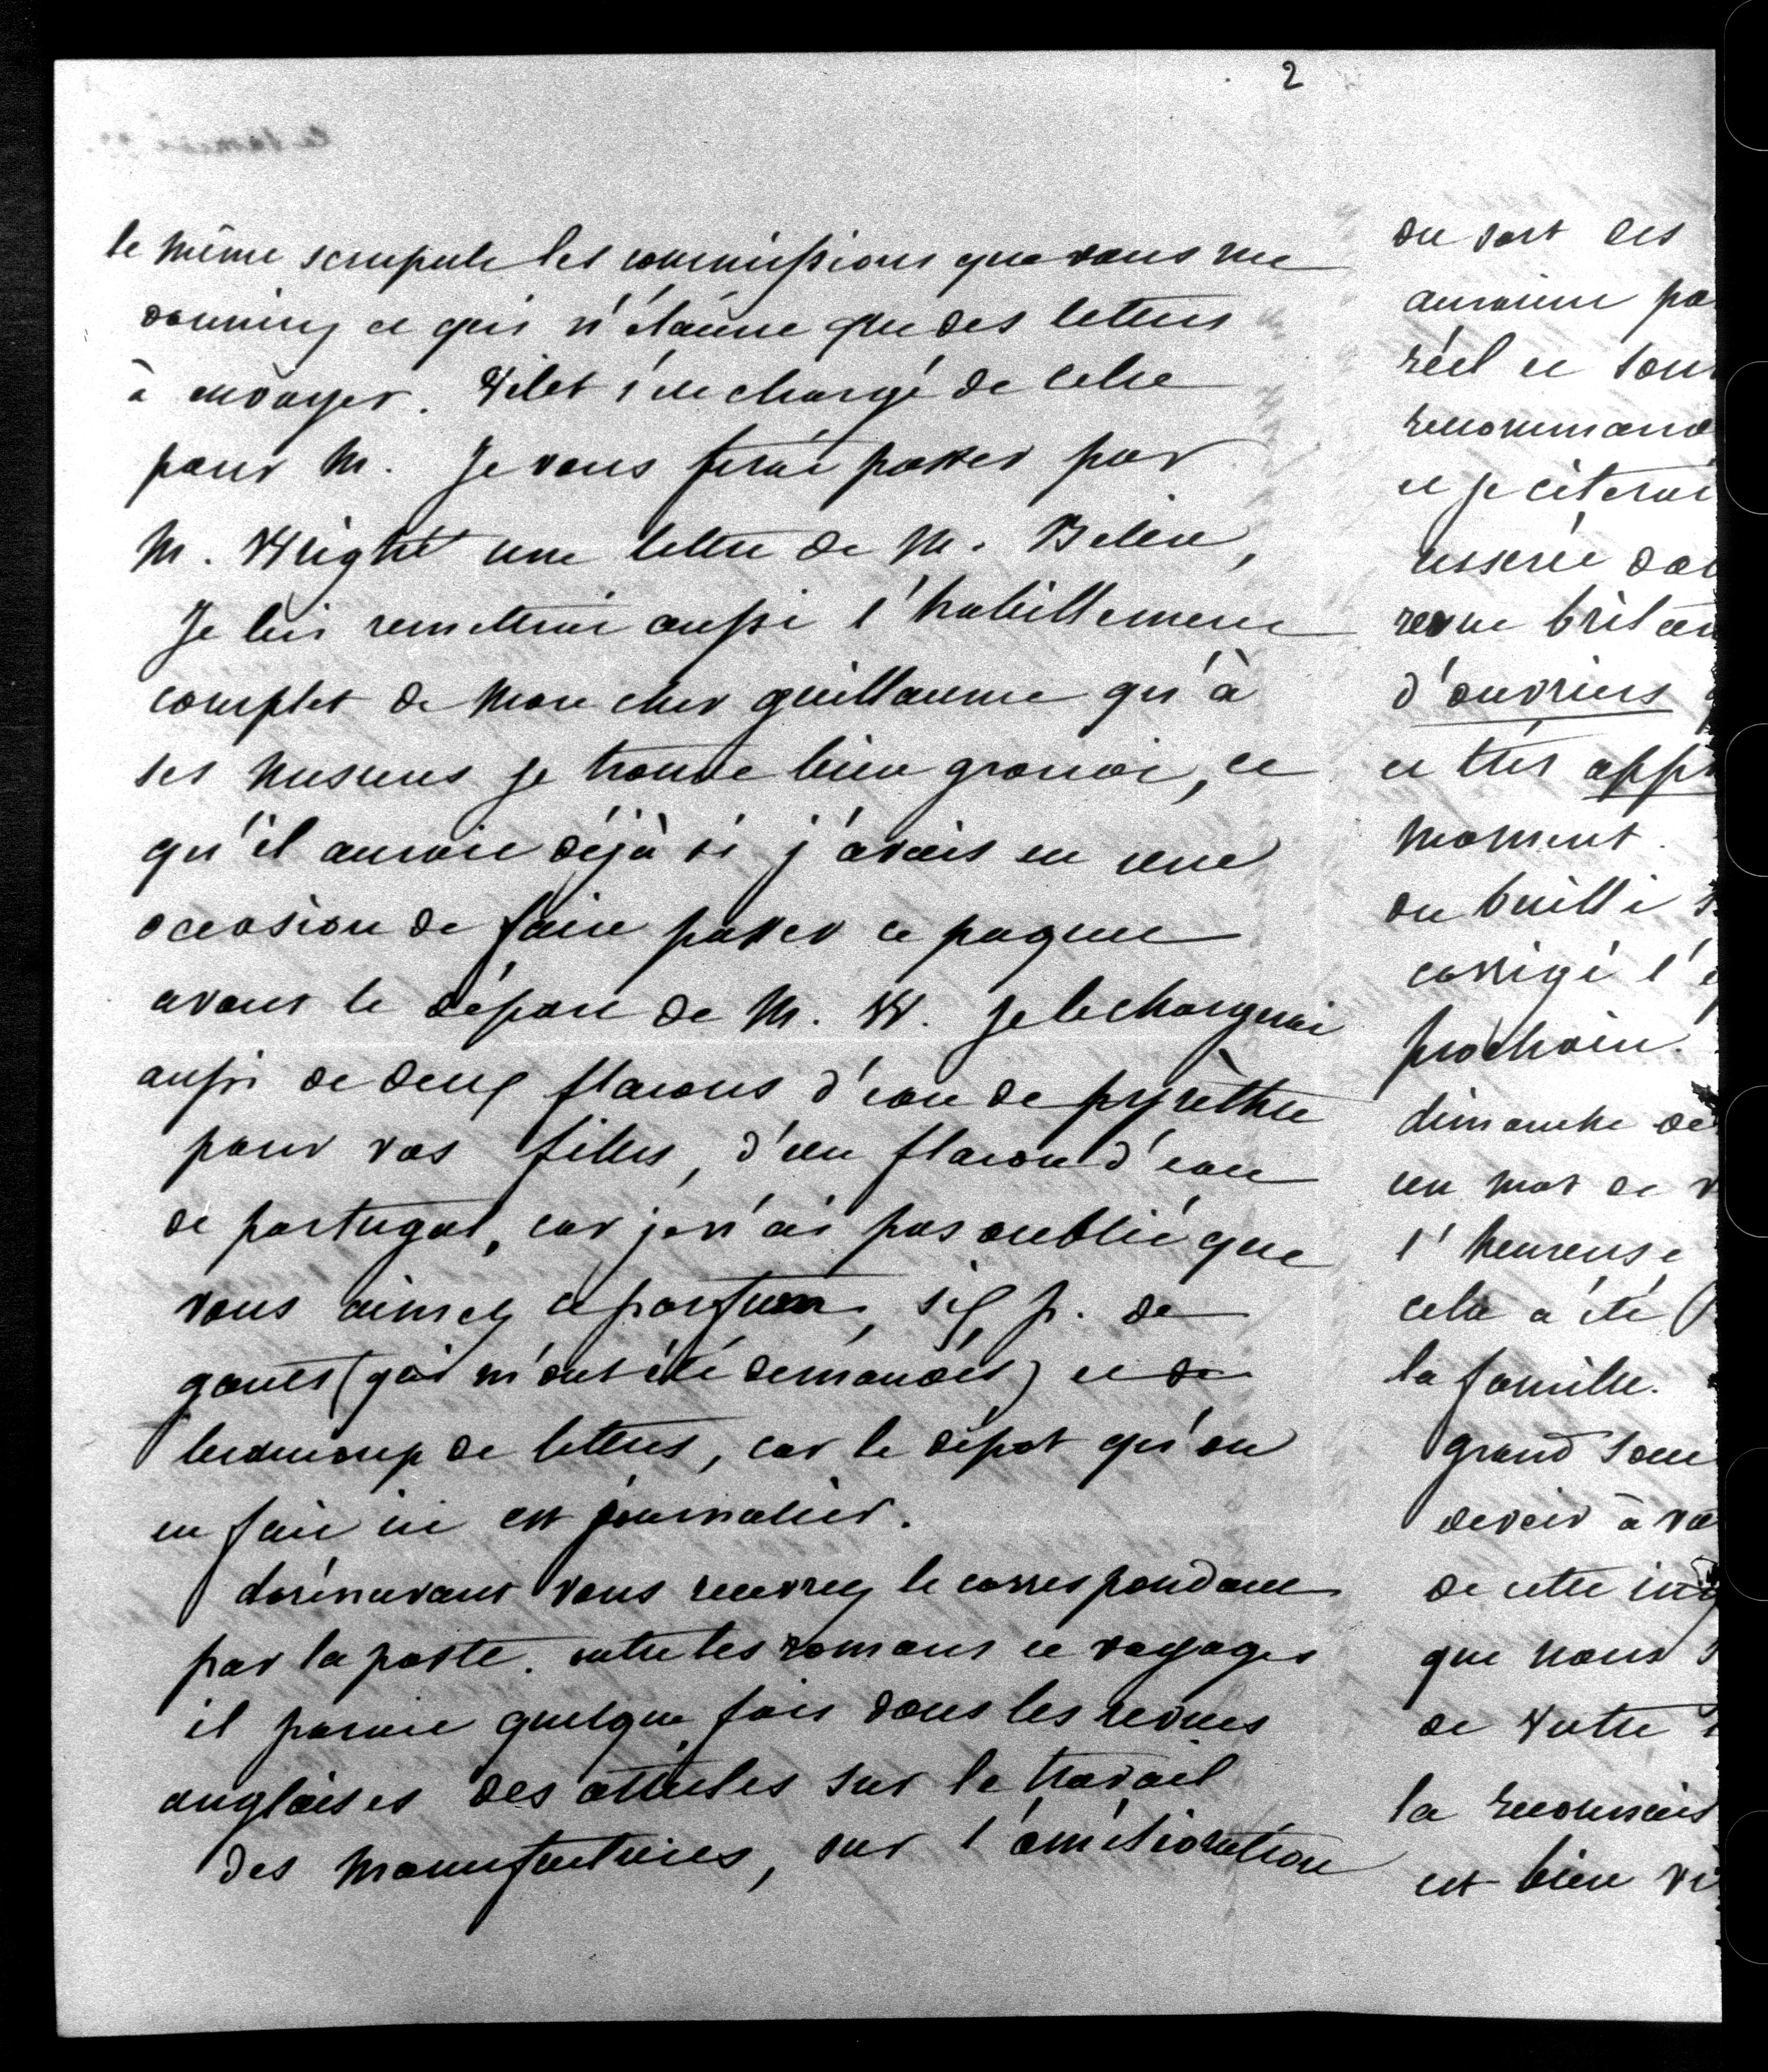 2
le même scrupule les commissions que vous me
donniez et qui n'étaient que des lettres
à envoyer. Vilet s'est chargé de celle
pour M. Je vous ferai passer par
M. Wright une lettre de M. Belin,
Je lui remettrai aussi l'habillement
complet de mon cher guillaume qu'à
ses mesures je trouve bien grandi, et
qu'il aurait déjà si j'avais eu une
occasion de faire passer ce paquet
avant le départ de M. W. Je le chargerai
aussi de deux flacons d'eau de pyrèthre
pour vos filles, d'un flacon d'eau
de portugal, car je n'ai pas oublié que
vous aimez ce parfum, six p. de
gants (qui m'ont été demandés) et de
beaucoup de lettres, car le dépôt qu'on
en fait ici est journalier.
dorénavant vous recevrez le correspondant
par la poste. outre les romans et voyages
il parait quelque fois dans les revues
anglaises des articles sur le travail
des manufactures, sur l'amélioration
du sort des
auraient pa
réel et sour
recommand
et je citerai
insérée da
revue britan
d'ouvriers
et très app
moment.
ou bailli
corrigé l'é
prochain.
dimanche de
un mot de v
l'heureuse
cela a été
la famille.
grand sou
devoir à vo
de cette
que nous
de votre
la reconnais
est bien vi